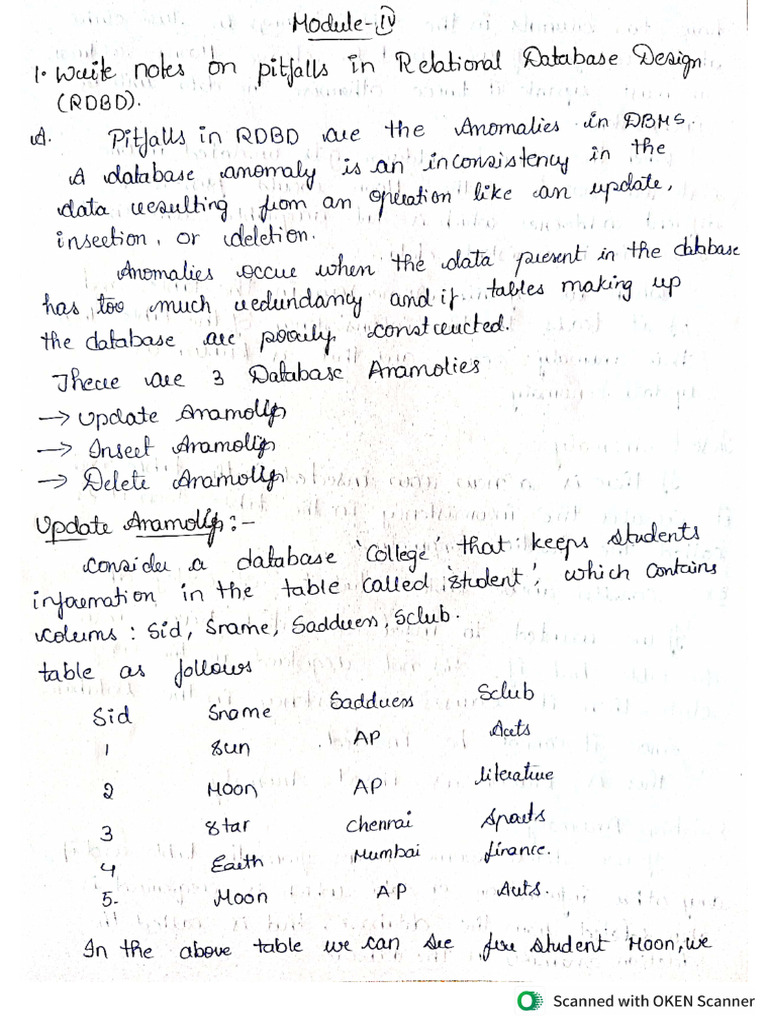 Module-IV
1. Write notes on pitfalls in Relational Database Design
(RDBD).
A. Pitfalls in RDBD are the Anomalies in DBMS.
A database anomaly is an inconsistency in the
data resulting from an operation like an update,
insection, or deletion.
Anomalies occur when the data present in the database
has too much redundancy and if tables making up
the database are poorly constructed.
There are 3 Database Anamolies
→ Update Anamolly
→ Insert Anamolly
→ Delete Anamolly
Update Anamolly:-
consider a database 'College' that keeps students
information in the table called 'student', which contains
colums: Sid, Sname, Saddress, Sclub.
table as follows
Sid Sname Saddress Sclub
1 Sun AP Arts
2 Moon AP literature
3 Star Chennai Sports
4 Earth Mumbai finance.
5. Moon AP Arts.
In the above table we can see for student Moon, we
Scanned with OKEN Scanner